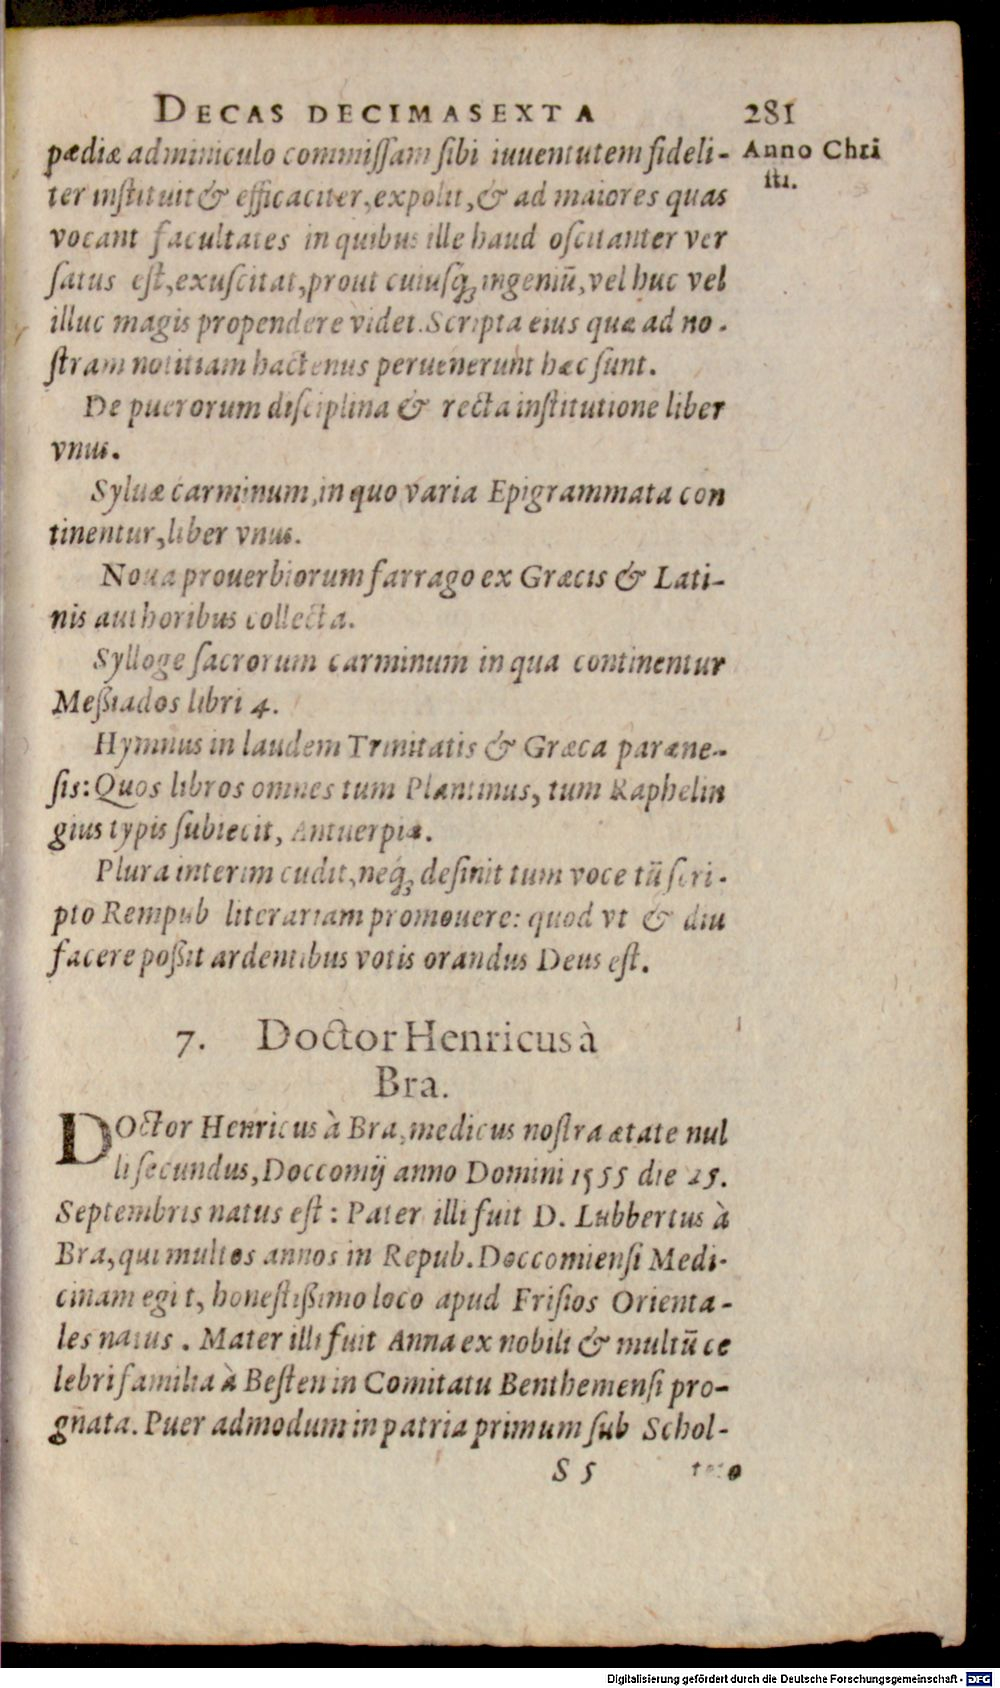 DECAS DECIMASEXTA 281
pædiæ adminiculo commissam sibi iuuentutem fideli- Anno Chri
sti.
ter instituit & efficaciter, expolit, & ad maiores quas
vocant facultates in quibus ille haud oscitanter ver
satus est, exuscitat, prout cuiusq́; ingeniū, vel huc vel
illuc magis propendere videt. Scripta eius quæ ad no-
stram notitiam hactenus peruenerunt hæc sunt.
De puerorum disciplina & recta institutione liber
vnus.
Syluæ carminum, in quo varia Epigrammata con
tinentur, liber vnus.
Noua prouerbiorum farrago ex Græcis & Lati-
nis authoribus collecta.
Sylloge sacrorum carminum in qua continentur
Meßiados libri 4.
Hymnus in laudem Trinitatis & Græca paræne-
sis: Quos libros omnes tum Plantinus, tum Raphelin
gius typis subiecit, Antuerpiæ.
Plura interim cudit, neq́; desinit tum voce tū scri-
pto Rempub literariam promouere: quod vt & diu
facere poßit ardentibus votis orandus Deus est.
7. Doctor Henricus à
Bra.
DOctor Henricus à Bra, medicus nostra ætate nul
li secundus, Doccomij anno Domini 1555 die 25.
Septembris natus est: Pater illi fuit D. Lubbertus à
Bra, qui multos annos in Repub. Doccomiensi Medi-
cinam egit, honestißimo loco apud Frisios Orienta-
les natus. Mater illi fuit Anna ex nobili & multū ce
lebri familia à Besten in Comitatu Benthemensi pro-
gnata. Puer admodum in patria primum sub Schol-
S 5
Digitalisierung gefördert durch die Deutsche Forschungsgemeinschaft - DFG